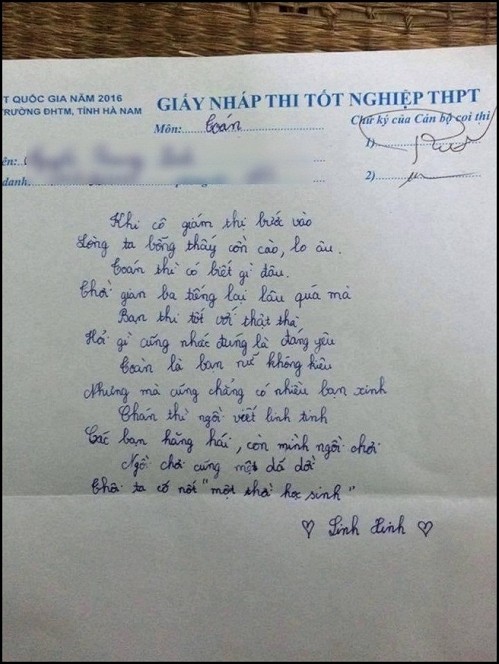 T QUỐC GIA NĂM 2016
TRƯỜNG ĐHTM, TỈNH HÀ NAM
GIẤY NHÁP THI TỐT NGHIỆP THPT
Môn: Toán
Chữ ký của Cán bộ coi thi
1)
ên:
danh
2)
Khi cô giám thị bước vào
Lòng ta bỗng thấy cồn cào, lo âu.
Toán thì có biết gì đâu.
Thời gian ba tiếng lại lâu quá mà
Bạn thi tốt với thật thà
Hỏi gì cũng nhác đúng là đáng yêu
Toàn là bạn nữ không kiêu
Nhưng mà cũng chẳng có nhiều bạn xinh
Chán thì ngồi viết linh tinh
Các bạn hăng hái, còn mình ngồi chơi
Ngồi chơi cũng mệt dã dời
Thôi ta cố nốt "một thời học sinh"
♡ Linh Xinh ♡